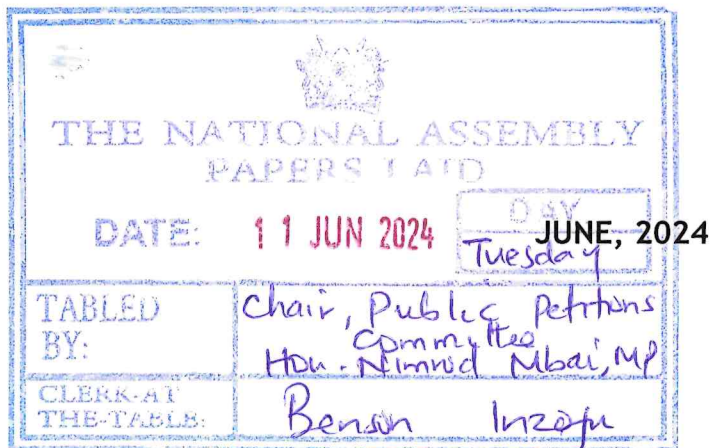 THE NATIONAL ASSEMBLY
PAPERS LAID
DAY
DATE: 11 JUN 2024 Tuesday
JUNE, 2024
TABLED BY: Chair, Public Petitions
Committee
Hon. Nimrod Mbai, MP
CLERK-AT THE-TABLE: Benson